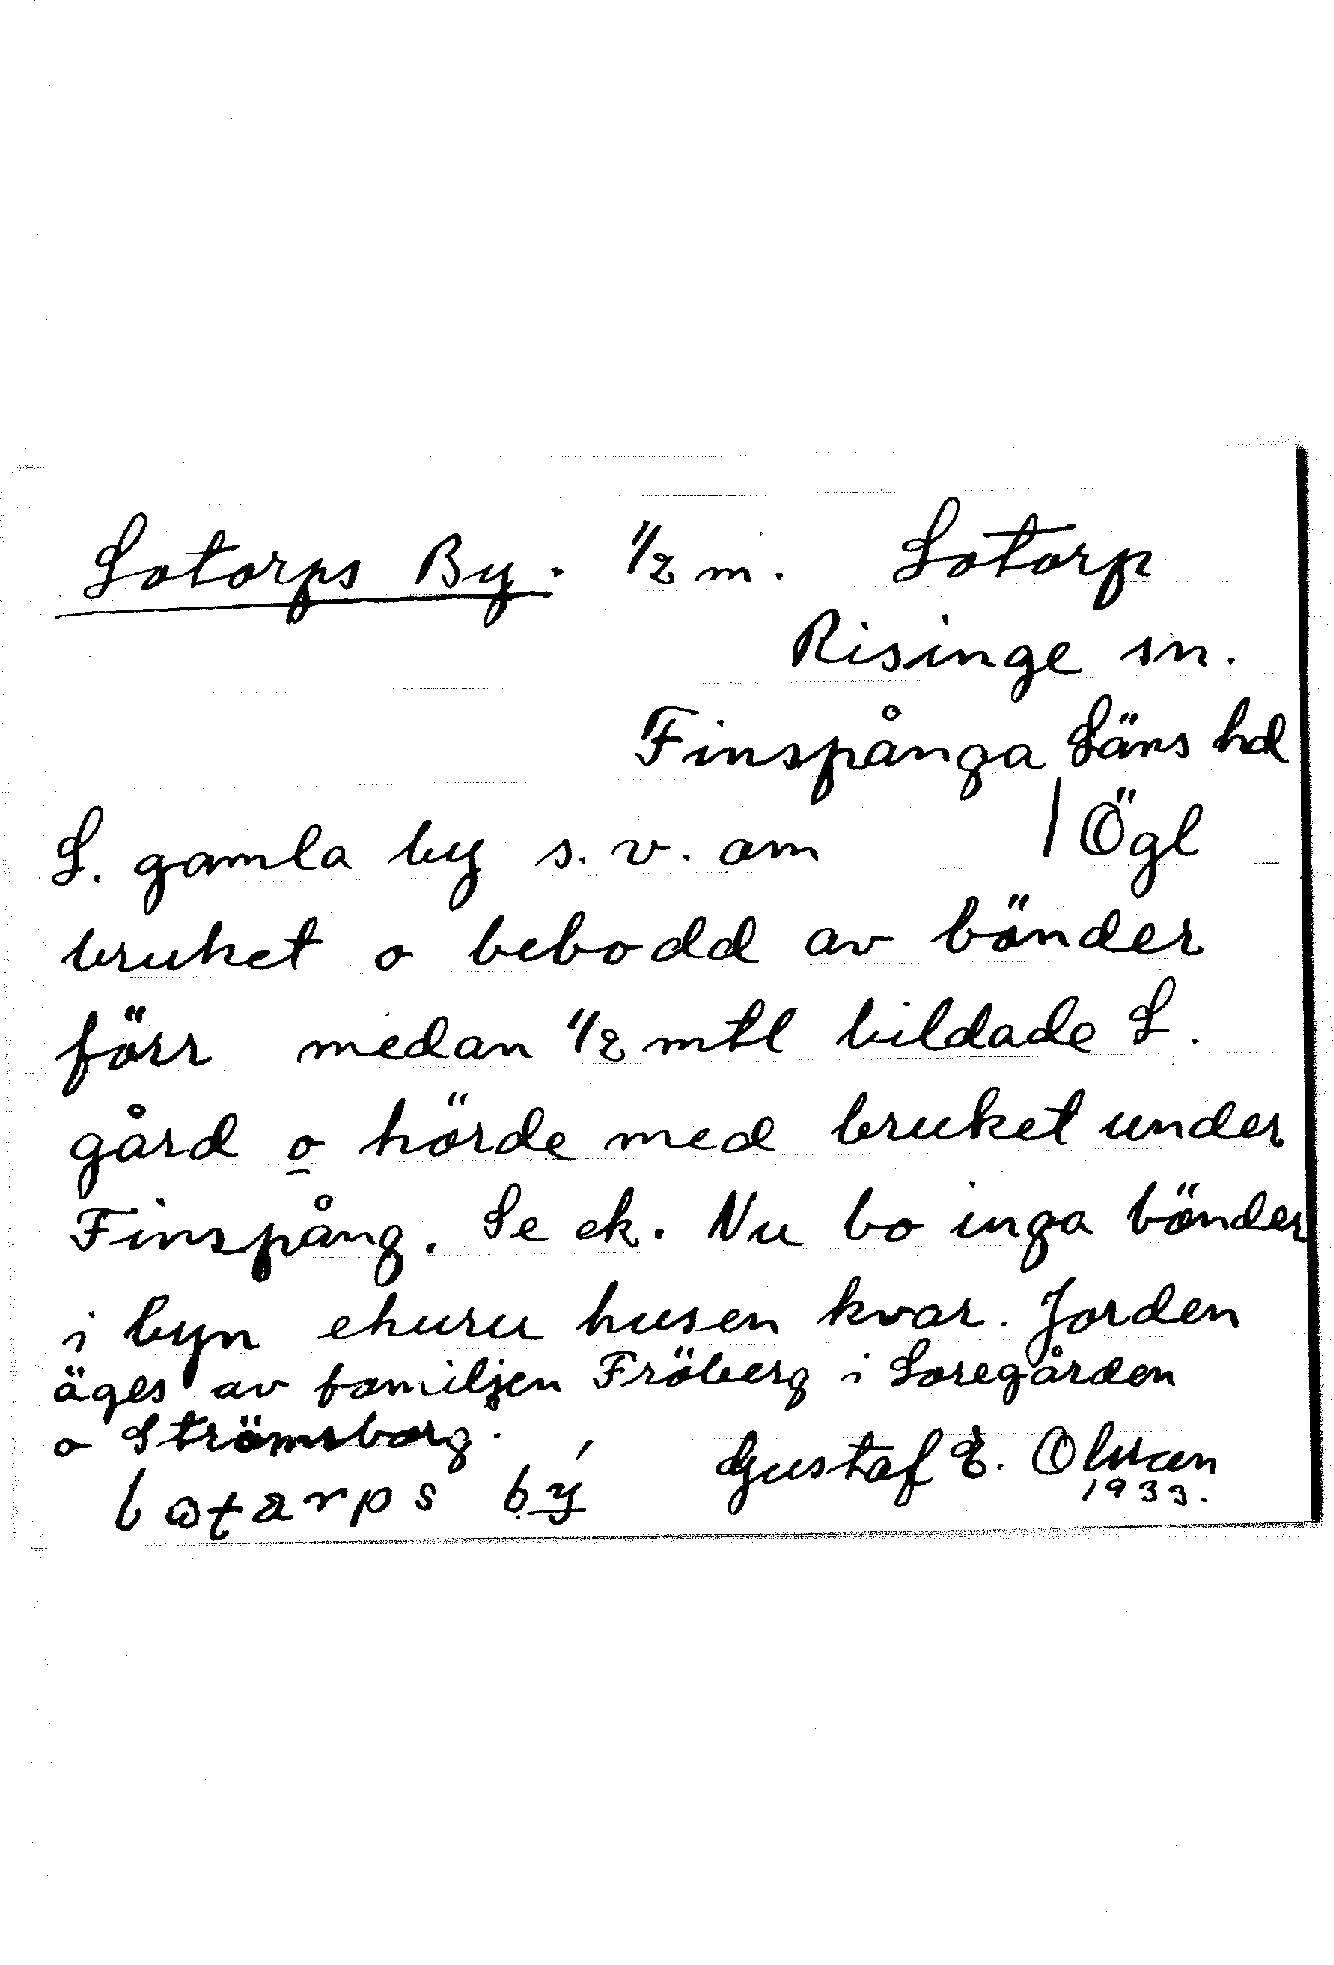 Lotorps By. 1/2 m. Lotorp
Risinge sn.
Finspånga Läns hd
L. gamla by s.v. om | Ögl
bruket o bebodd av bönder
förr medan 1/2 mtl bildade L.
gård o hörde med bruket under
Finspång. Se ek. Nu bo inga bönder
i byn ehuru husen kvar. Jorden
äges av familjen Fröberg i Loregården
o Strömsborg.
lotarps bý
Gustaf E. Olsson
1933.